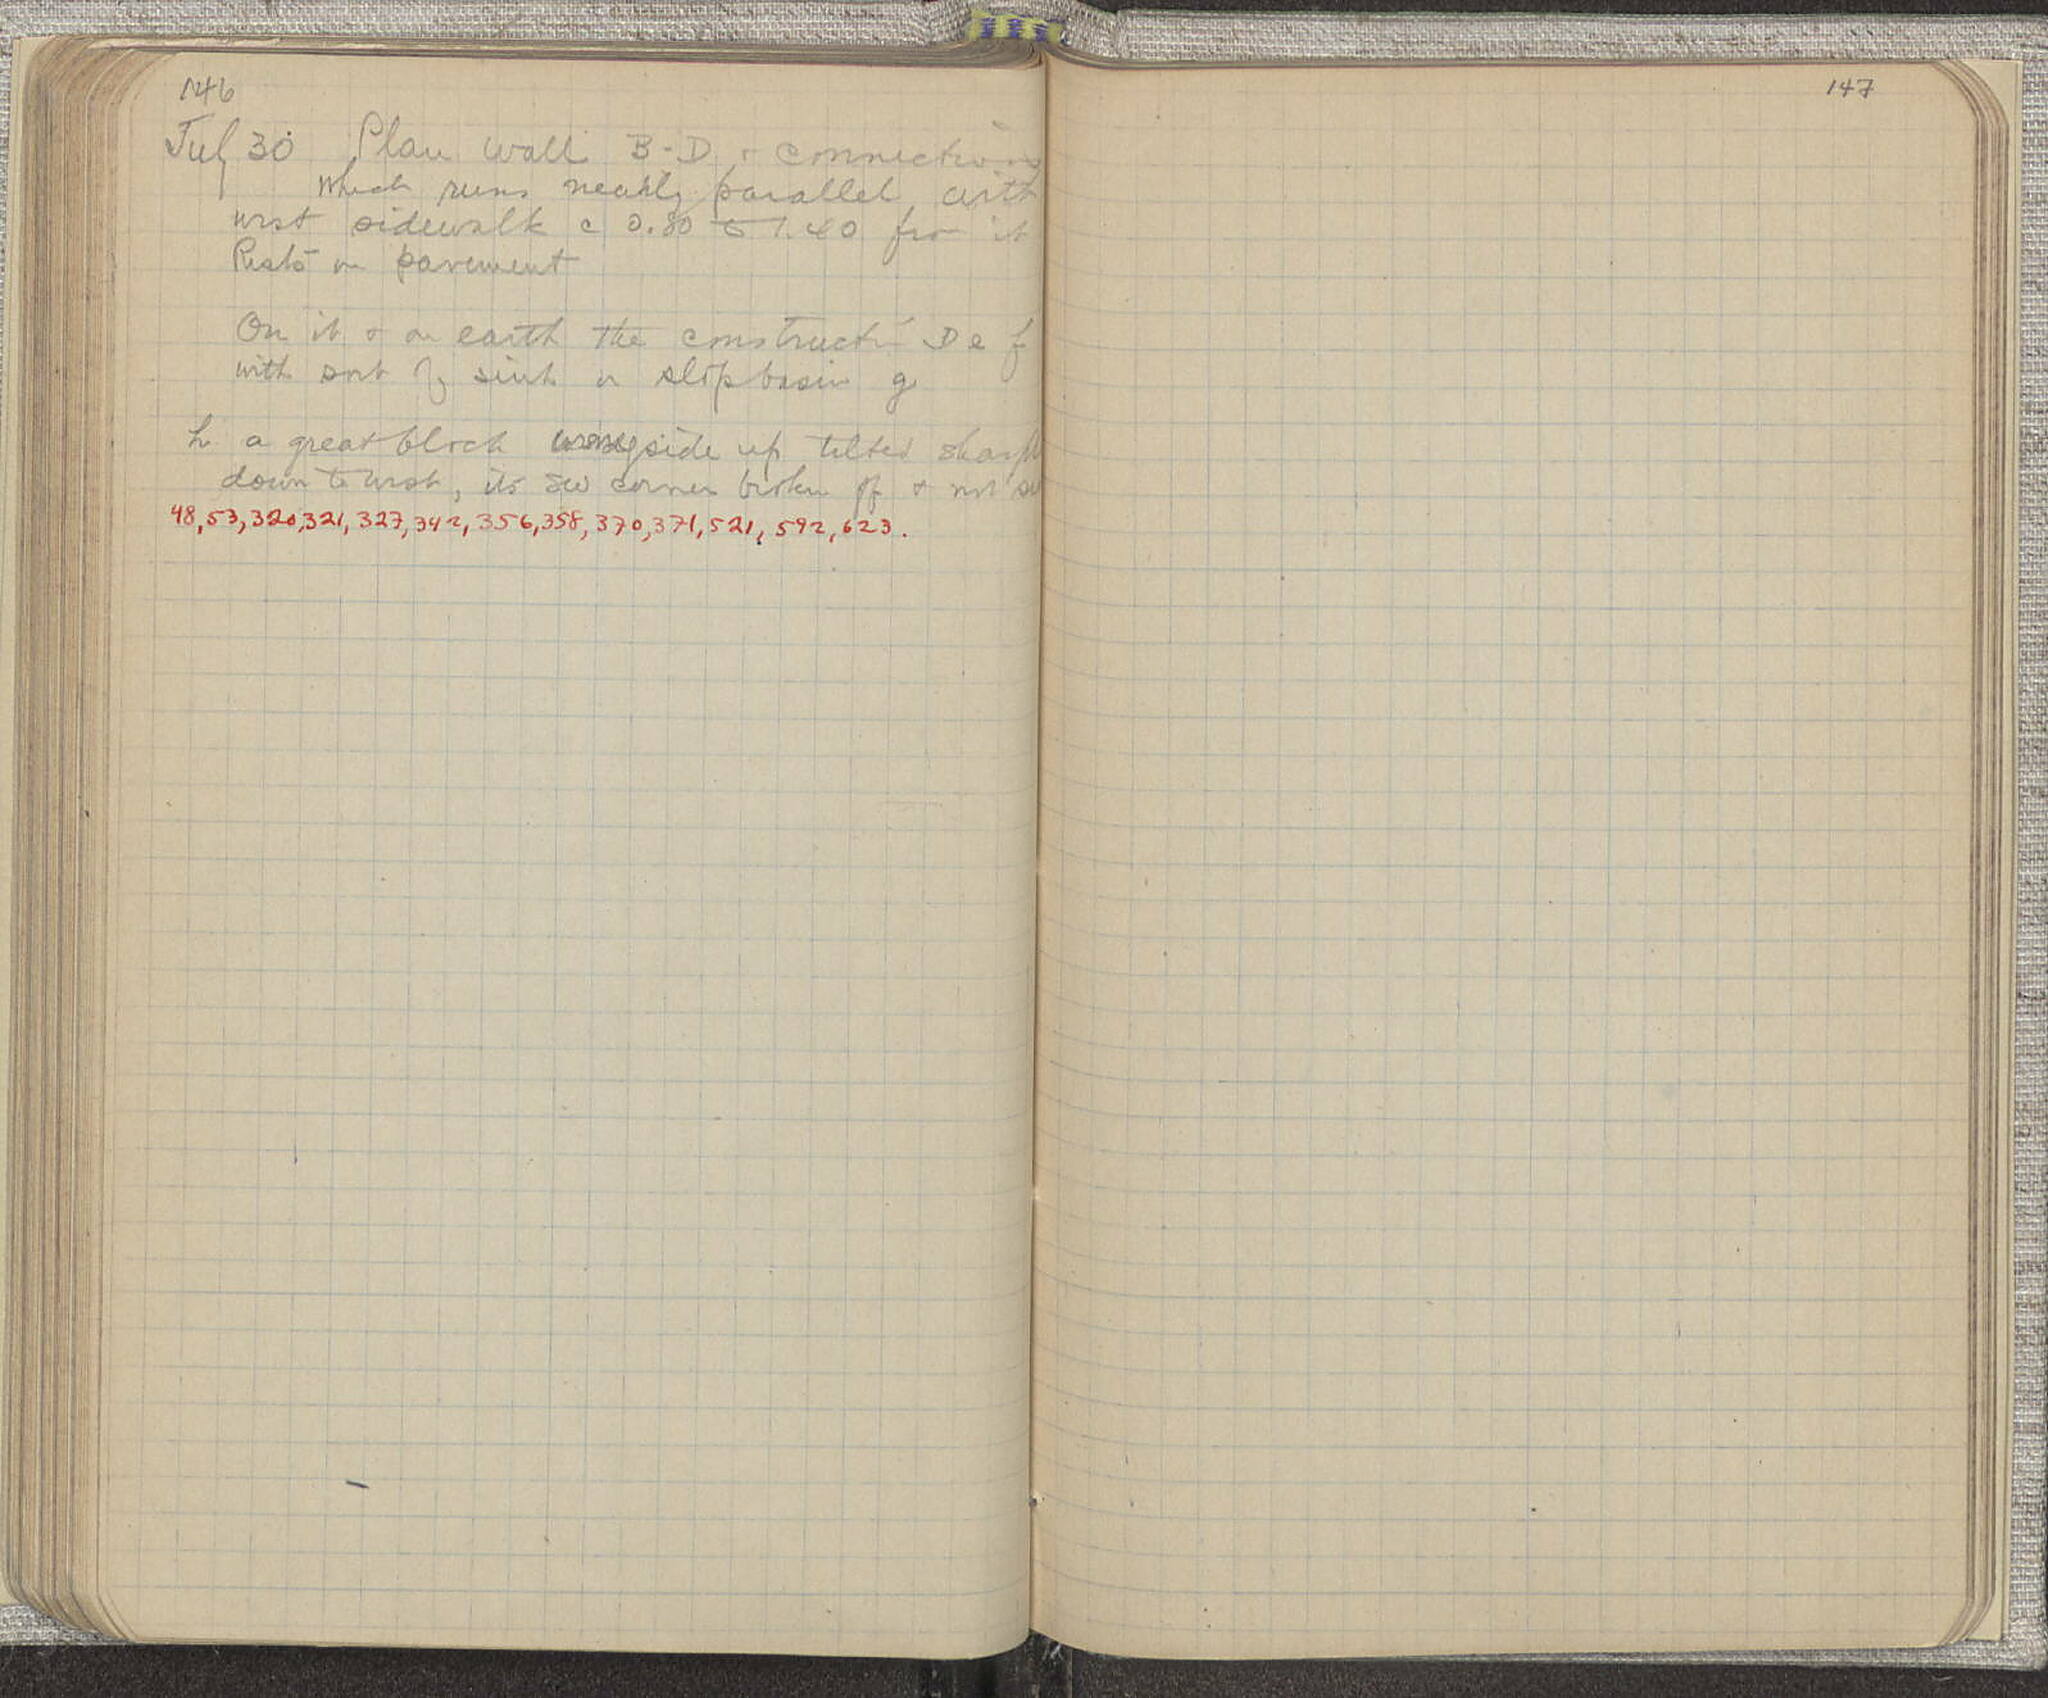 146
July 30 Plan wall B-D & connections
which runs nearly parallel with
west sidewalk c 0.80 to 1.40 from it
Rests on pavement
On it & on earth the construct' D e f
with sort of sink or slop basin g
h a great block wrong side up tilted sharply
down to west, its SW corner broken off & not
48, 53, 320, 321, 327, 342, 356, 358, 370, 371, 521, 592, 623.
147